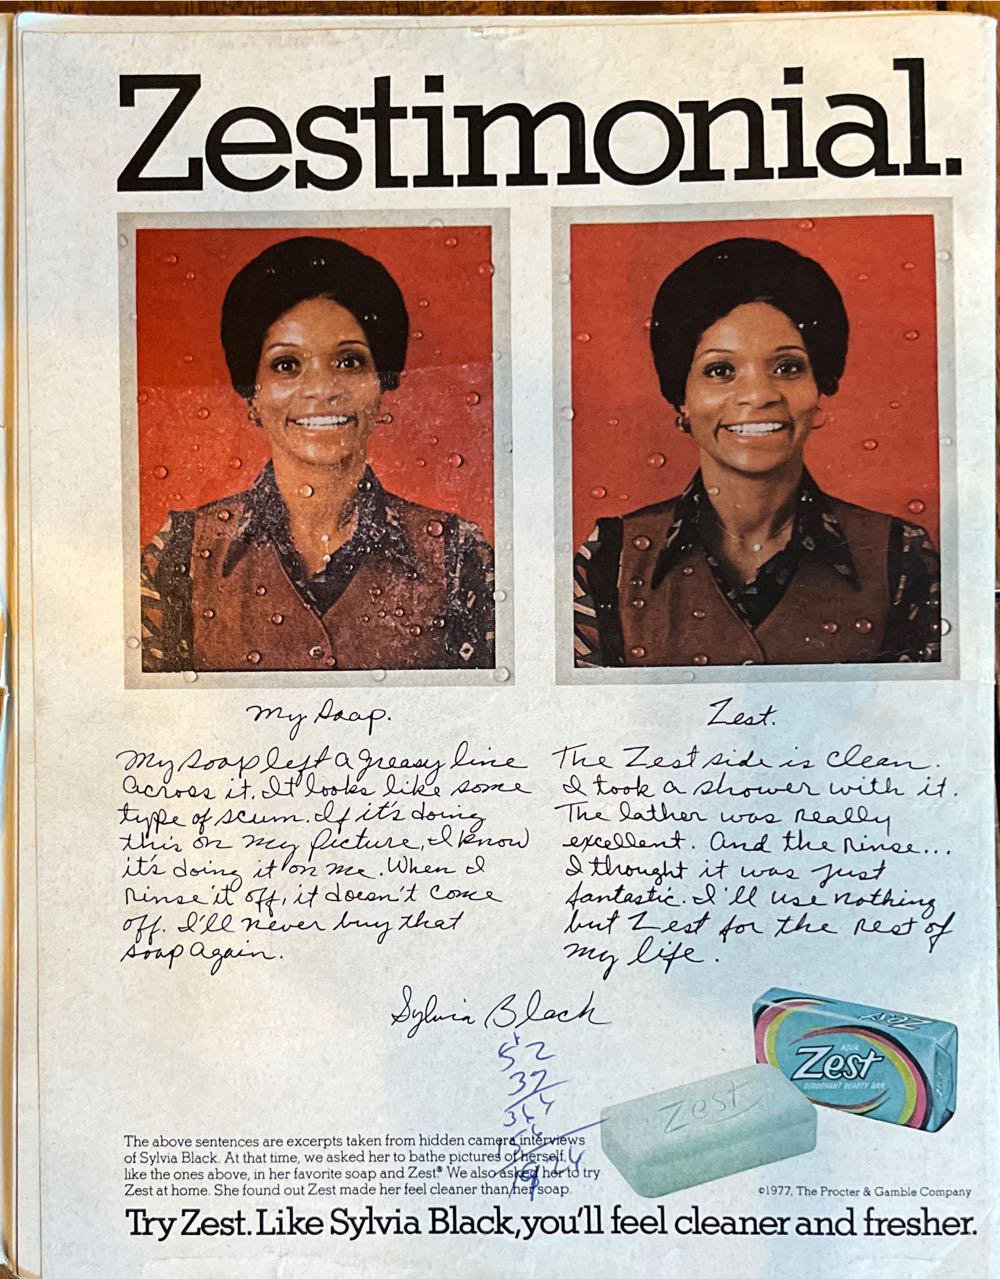 Zestimonial.
My Soap.
My soap left a greasy line
across it. It looks like some
type of scum. If it's doing
this on my picture, I know
it's doing it on me. When I
rinse it off, it doesn't come
off. I'll never buy that
soap again.
Zest.
The Zest side is clean.
I took a shower with it.
The lather was really
excellent. And the rinse...
I thought it was just
fantastic. I'll use nothing
but Zest for the rest of
my life.
Sylvia Black
52
32
Zest
AQUA
Zest
DEODORANT BEAUTY BAR
Zest
The above sentences are excerpts taken from hidden camera interviews
of Sylvia Black. At that time, we asked her to bathe pictures of herself,
like the ones above, in her favorite soap and Zest.® We also asked her to try
Zest at home. She found out Zest made her feel cleaner than her soap.
©1977, The Procter & Gamble Company
Try Zest. Like Sylvia Black, you'll feel cleaner and fresher.